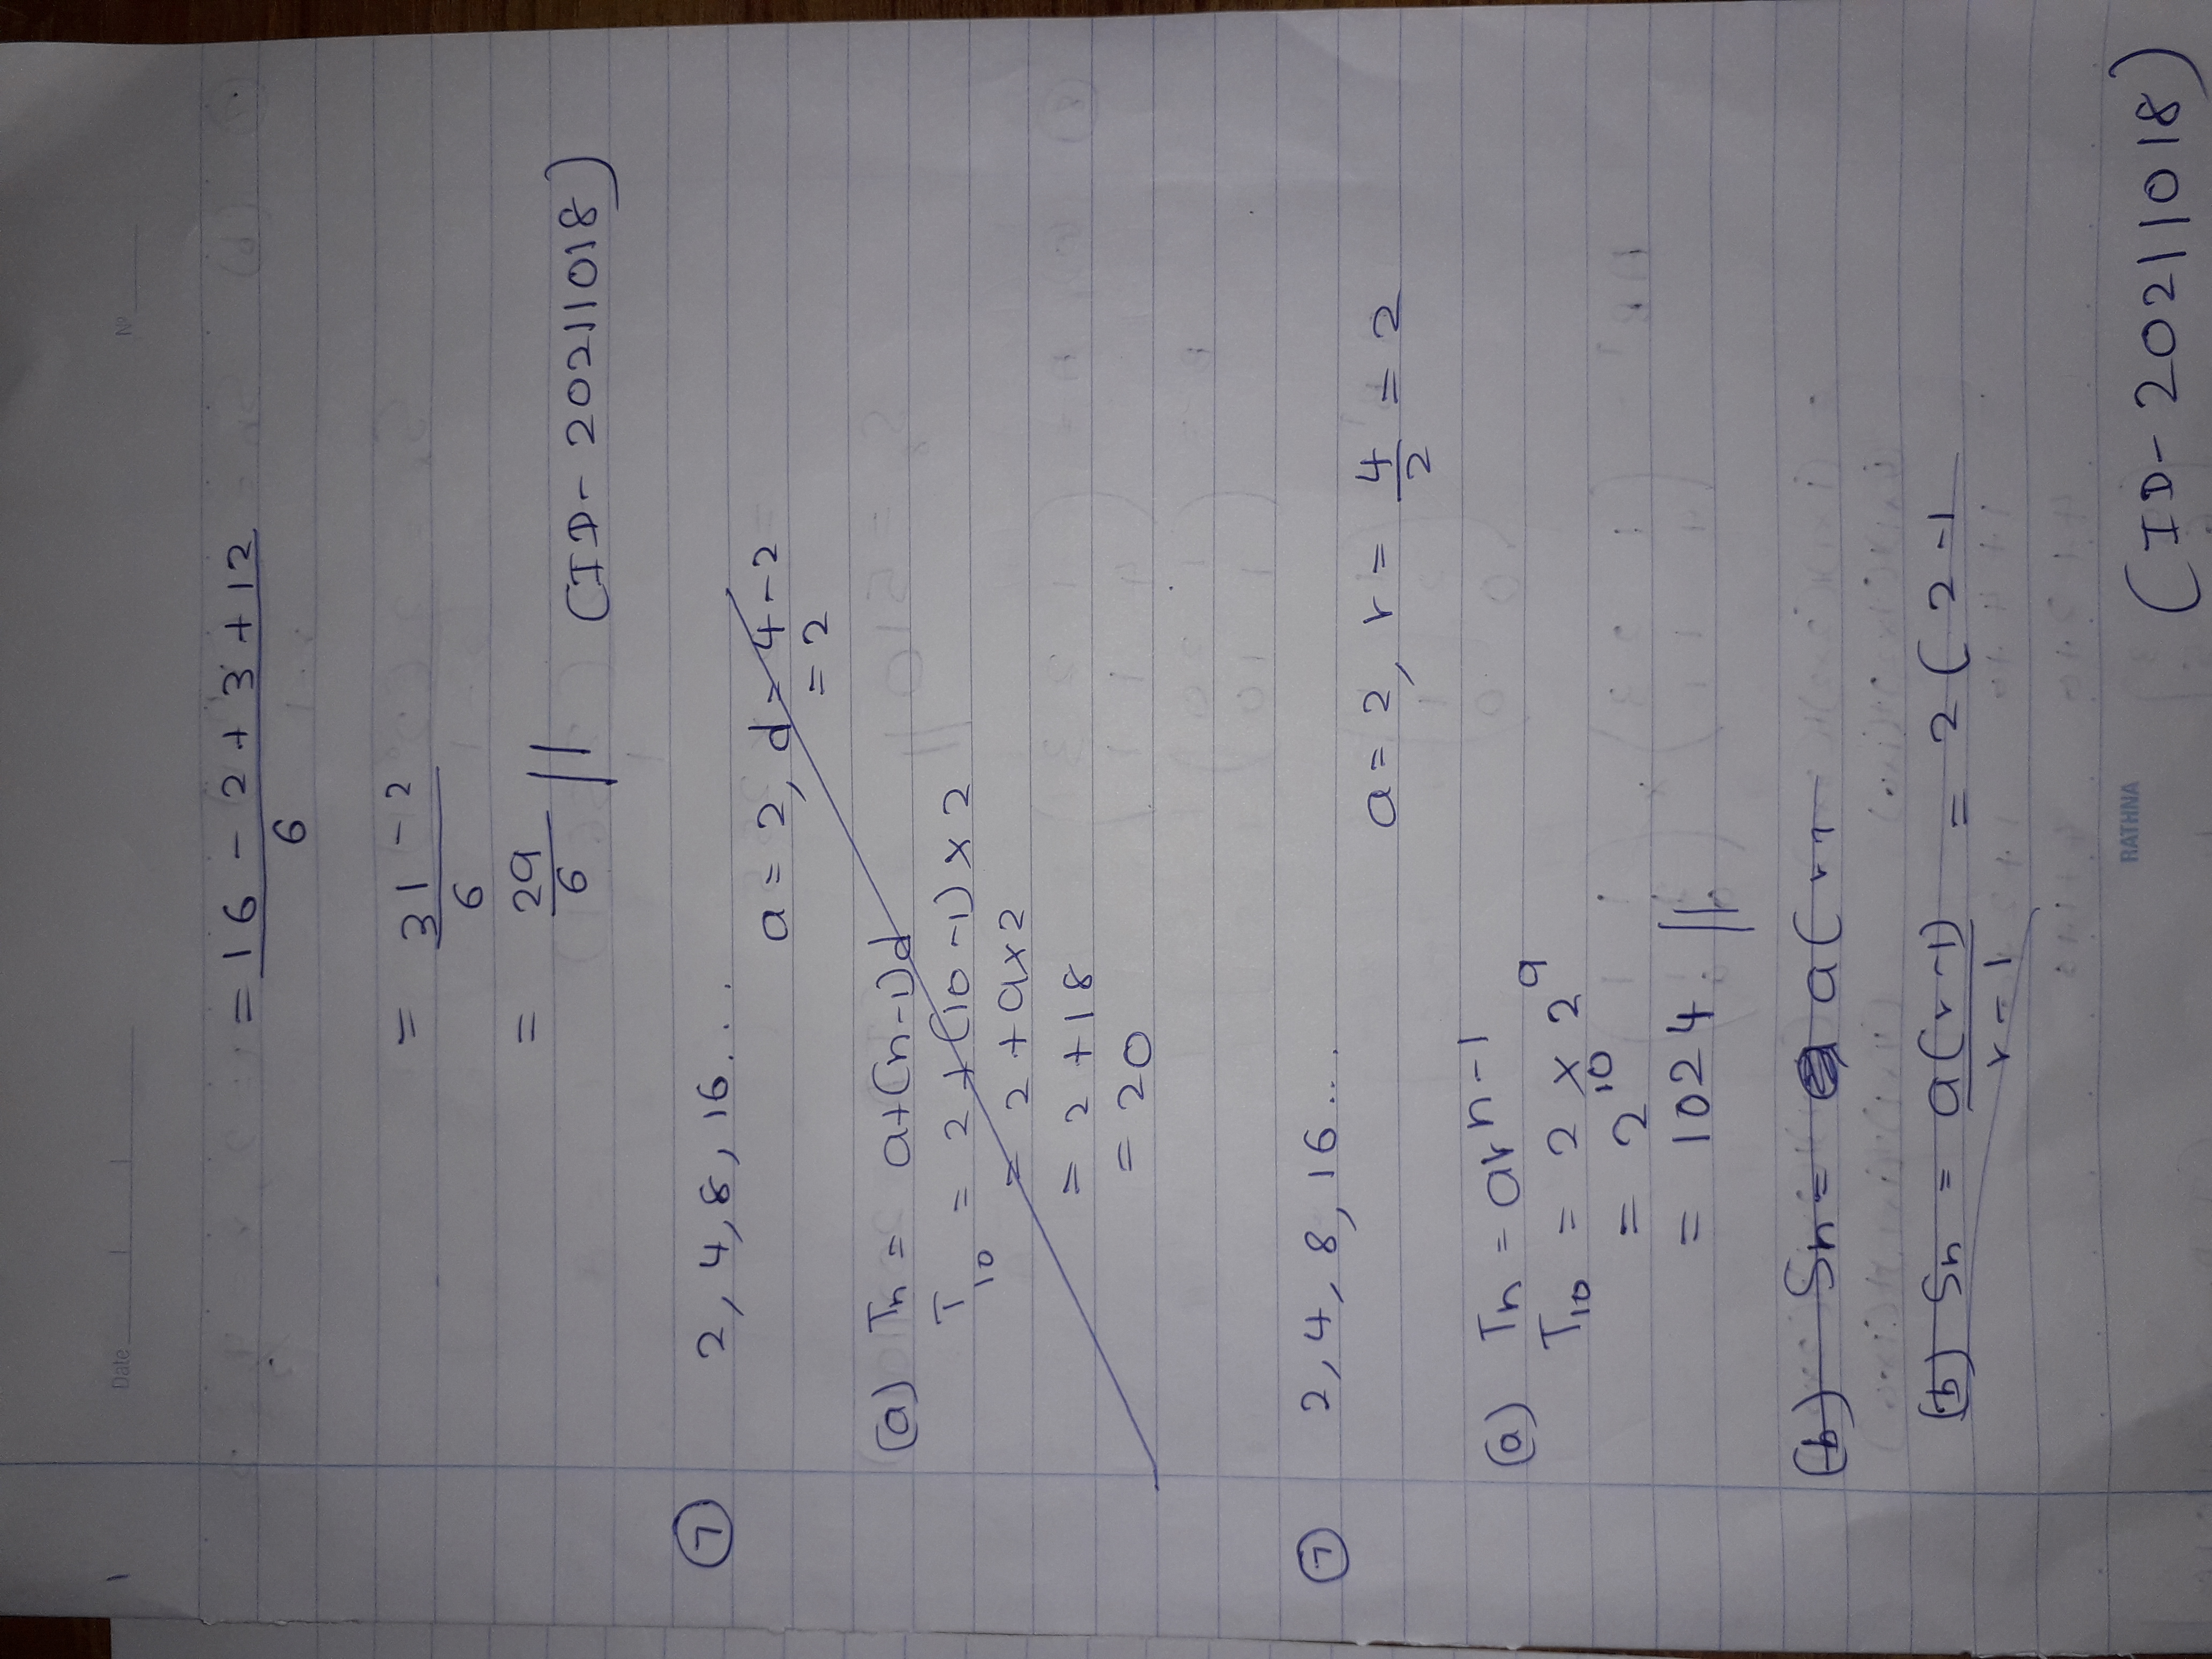 1
Date
Nº
= 16 - 2 + 3 + 12
6
= 31 - 2
6
= 29
6 //
(ID- 20211018)
7 2, 4, 8, 16 . . .
a = 2, d = 4 - 2
= 2
(a) Tn = a+(n-1)d
T10 = 2 + (10 -1) x 2
= 2 + 9x2
= 2 + 18
= 20
7 2, 4, 8, 16 . . .
a = 2, r = 4/2 = 2
(a) Tn = ar^n-1
T10 = 2 x 2^9
= 2^10
= 1024 //
(b) Sn = a(r
(b) Sn = a(r-1) = 2(2-1
r-1
RATHNA
(ID- 20211018)